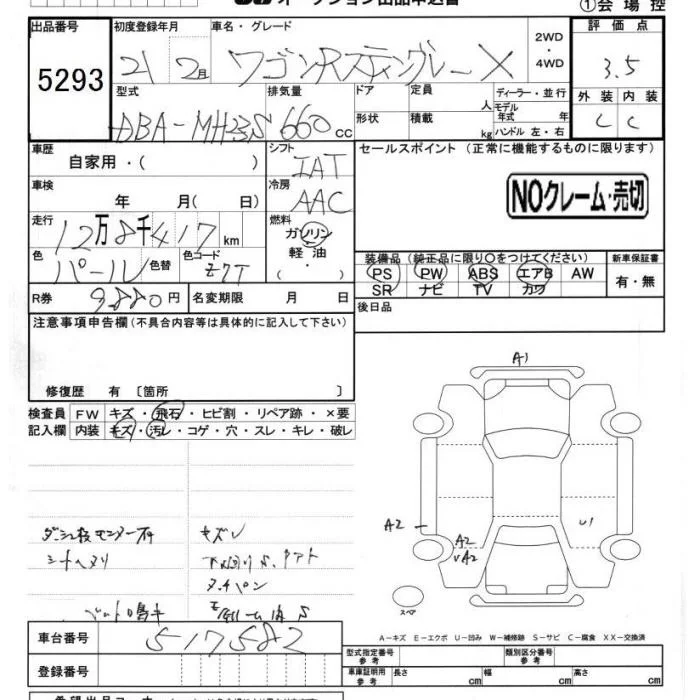 オークション出品申込書
①会場控
出品番号
5293
初度登録年月
21 2月
車名・グレード
ワゴンRスティングレー X
2WD
・
4WD
評価点
3.5
型式
DBA-MH23S
排気量
660 cc
ドア
形状
定員
人
積載
kg
ディーラー・並行
モデル
年式 年
ハンドル 左・右
外装 内装
C C
車歴
自家用・( )
シフト
IAT
セールスポイント (正常に機能するものに限ります)
NOクレーム・売切
車検
年 月( 日)
冷房
AAC
走行
12万8千417km
燃料
ガソリン
軽油
( ・ )
色
パール
色替
色コード
Z7T
装備品 (純正品に限り〇をつけてください)
PS PW ABS エアB AW
SR ナビ TV カワ
新車保証書
有・無
R券
9880円
名変期限 月 日
後日品
注意事項申告欄 (不具合内容等は具体的に記入して下さい)
修復歴 有 〔箇所 〕
検査員
記入欄
FW キズ・飛石・ヒビ割・リペア跡・×要
内装 キズ・汚レ・コゲ・穴・スレ・キレ・破レ
キズU
シートヘタリ
A1
A2
A2
A2
U1
スペア
A-キズ E-エクボ U-凹み W-補修跡 S-サビ C-腐食 XX-交換済
車台番号
517582
登録番号
型式指定番号
参考
類別区分番号
参考
車庫証明用
参考
長さ cm
幅 cm
高さ cm